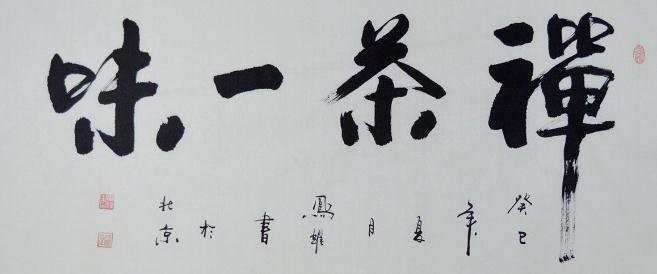 禪茶一味
癸巳年夏月鳳雄書於北京